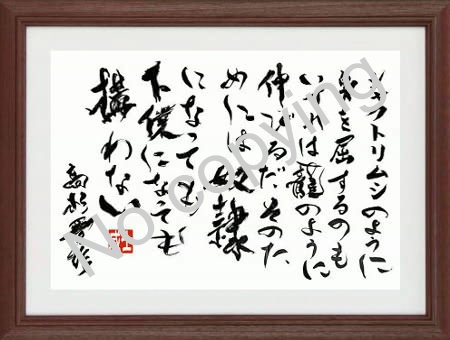 シャクトリムシのように
身を屈するのも
いずれは龍のように
伸びるだそのた
めには奴隷
になっても
下僕になっても
構わない
高杉晋作
No copying